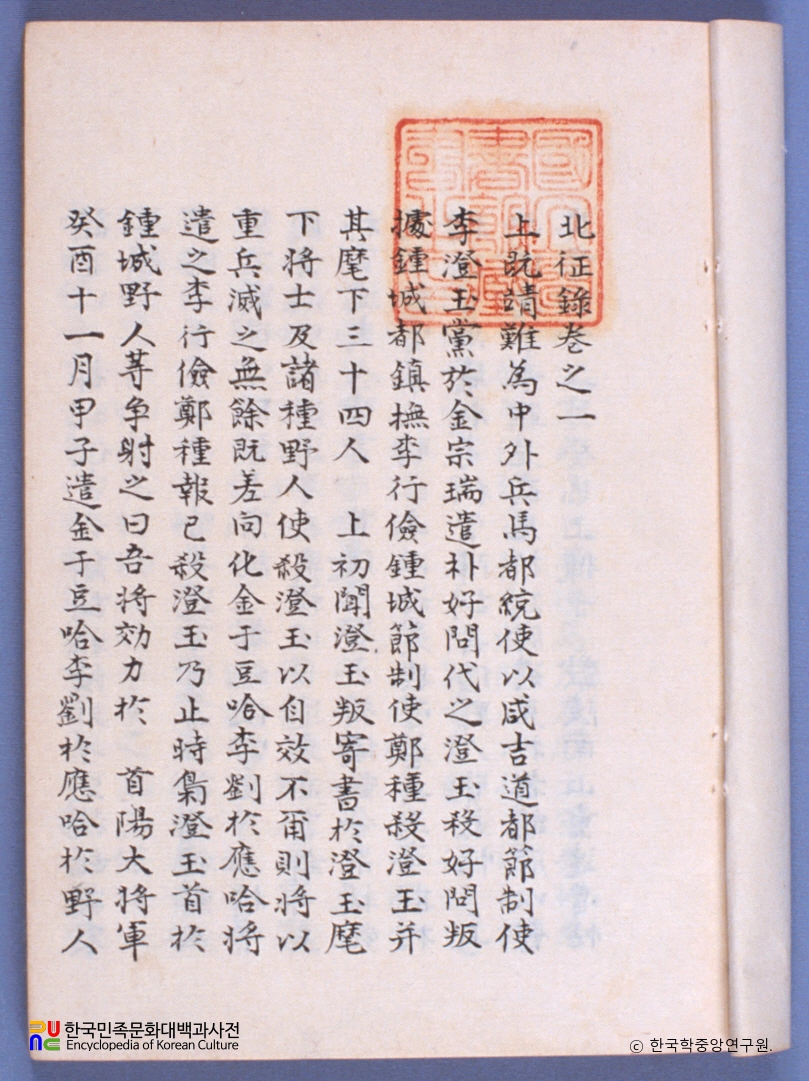 北征錄卷之一
上旣靖難爲中外兵馬都統使以咸吉道都節制使
李澄玉黨於金宗瑞遣朴好問代之澄玉殺好問叛
據鍾城都鎭撫李行儉鍾城節制使鄭種殺澄玉幷
其麾下三十四人 上初聞澄玉叛寄書於澄玉麾
下將士及諸種野人使殺澄玉以自效不甭則將以
重兵滅之無餘旣差向化金于豆哈李劉於應哈將
遣之李行儉鄭種報已殺澄玉乃止時梟澄玉首於
鍾城野人等爭射之曰吾將効力於 首陽大將軍
癸酉十一月甲子遣金于豆哈李劉於應哈於野人
한국민족문화대백과사전
Encyclopedia of Korean Culture
© 한국학중앙연구원.